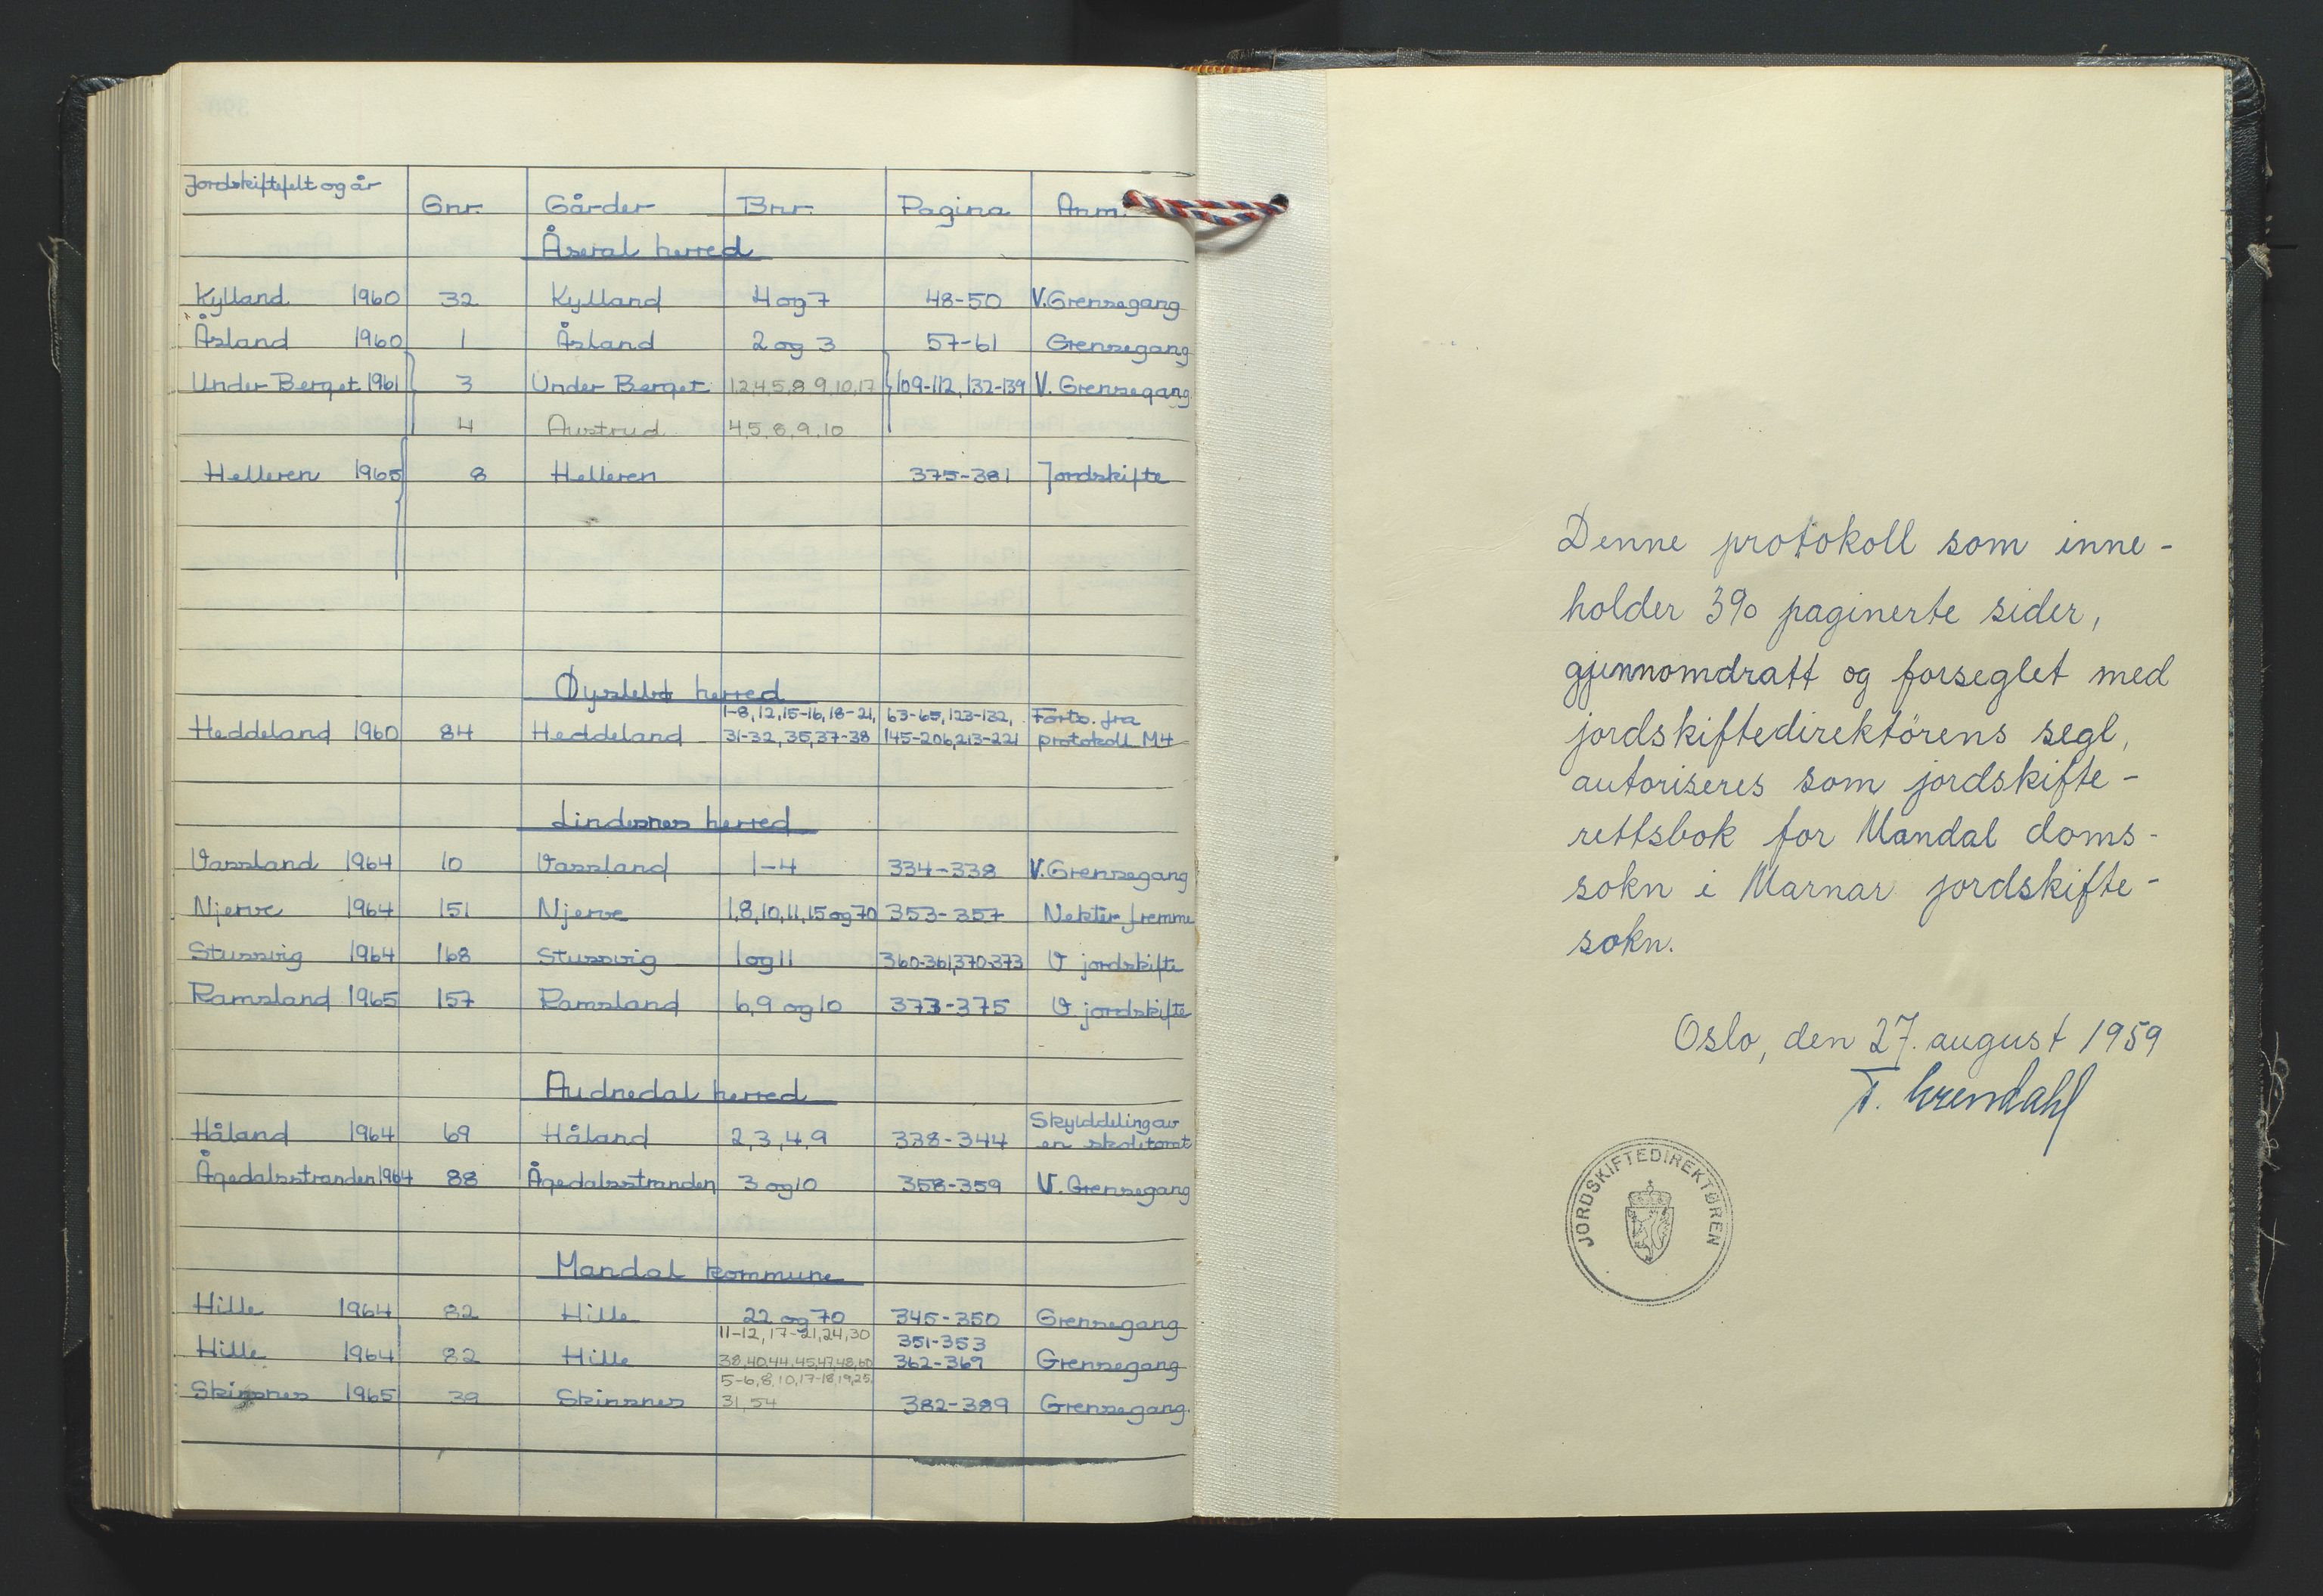 Jordskiftefelt og år Gnr. Gårder Bnr. Pagina Anm.
Åseral herred
Kylland 1960 32 Kylland 4 og 7 48-50 V. Grensegang
Åsland 1960 1 Åsland 2 og 3 57-61 Grensegang
Under Berget 1961 3 Under Berget 1,2,4,5,8,9,10,17 109-112, 132-139 V. Grensegang
4 Austrud 4,5,8,9,10
Helleren 1965 8 Helleren 375-381 Jordskifte
Øyslebø herred
1-8, 12, 15-16, 18-21, 63-65, 123-132, Forts. fra
Heddeland 1960 84 Heddeland 31-32, 35, 37-38 145-206, 213-221 protokoll M4
Lindesnes herred
Vassland 1964 10 Vassland 1-4 334-338 V. Grensegang
Njerve 1964 151 Njerve 1,8,10,11,15 og 70 353-357 Nektes fremme
Stussvig 1964 168 Stussvig 1 og 11 360-361, 370-373 V jordskifte
Ramsland 1965 157 Ramsland 6,9 og 10 373-375 V jordskifte
Audnedal herred
Skylddeling av
Håland 1964 69 Håland 2,3,4,9 338-344 en skoletomt
Ågedalsstranden 1964 88 Ågedalsstranden 3 og 10 358-359 V. Grensegang
Mandal kommune
Hille 1964 82 Hille 22 og 70 345-350 Grensegang
11-12, 17-21, 24, 30 351-353
Hille 1964 82 Hille 38,40,44,45,47,48,60 362-369 Grensegang
5-6, 8, 10, 17-18, 19, 25,
Skinsnes 1965 39 Skinsnes 31, 54 382-389 Grensegang.
Denne protokoll som inne-
holder 390 paginerte sider,
gjennomdratt og forseglet med
jordskiftedirektörens segl,
autoriseres som jordskifte-
rettsbok for Mandal doms-
sokn i Marnar jordskifte-
sokn.
Oslo, den 27. august 1959
T. Grendahl
JORDSKIFTEDIREKTØREN